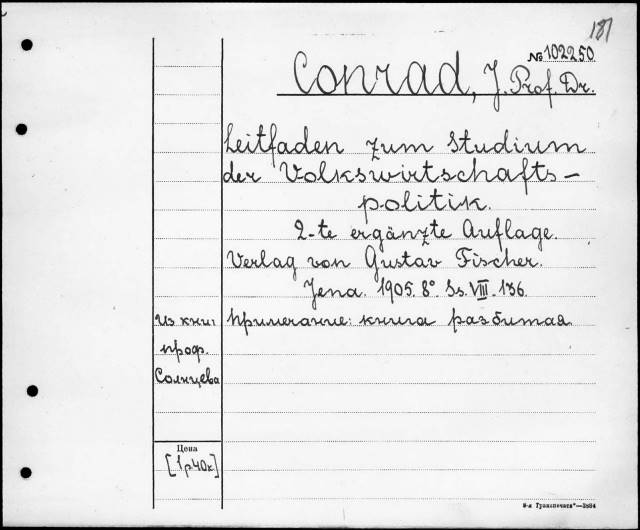 181
№ 102250
Conrad, J. Prof. Dr.
Leitfaden zum Studium
der Volkswirtschafts-
politik.
2-te ergänzte Auflage.
Verlag von Gustav Fischer.
Jena. 1905. 8° Ss. VIII. 136.
Из книг
проф.
Солнцева
Примечание: книга разбитая
Цена
[1р40к]
8-я Транспечати"—3864